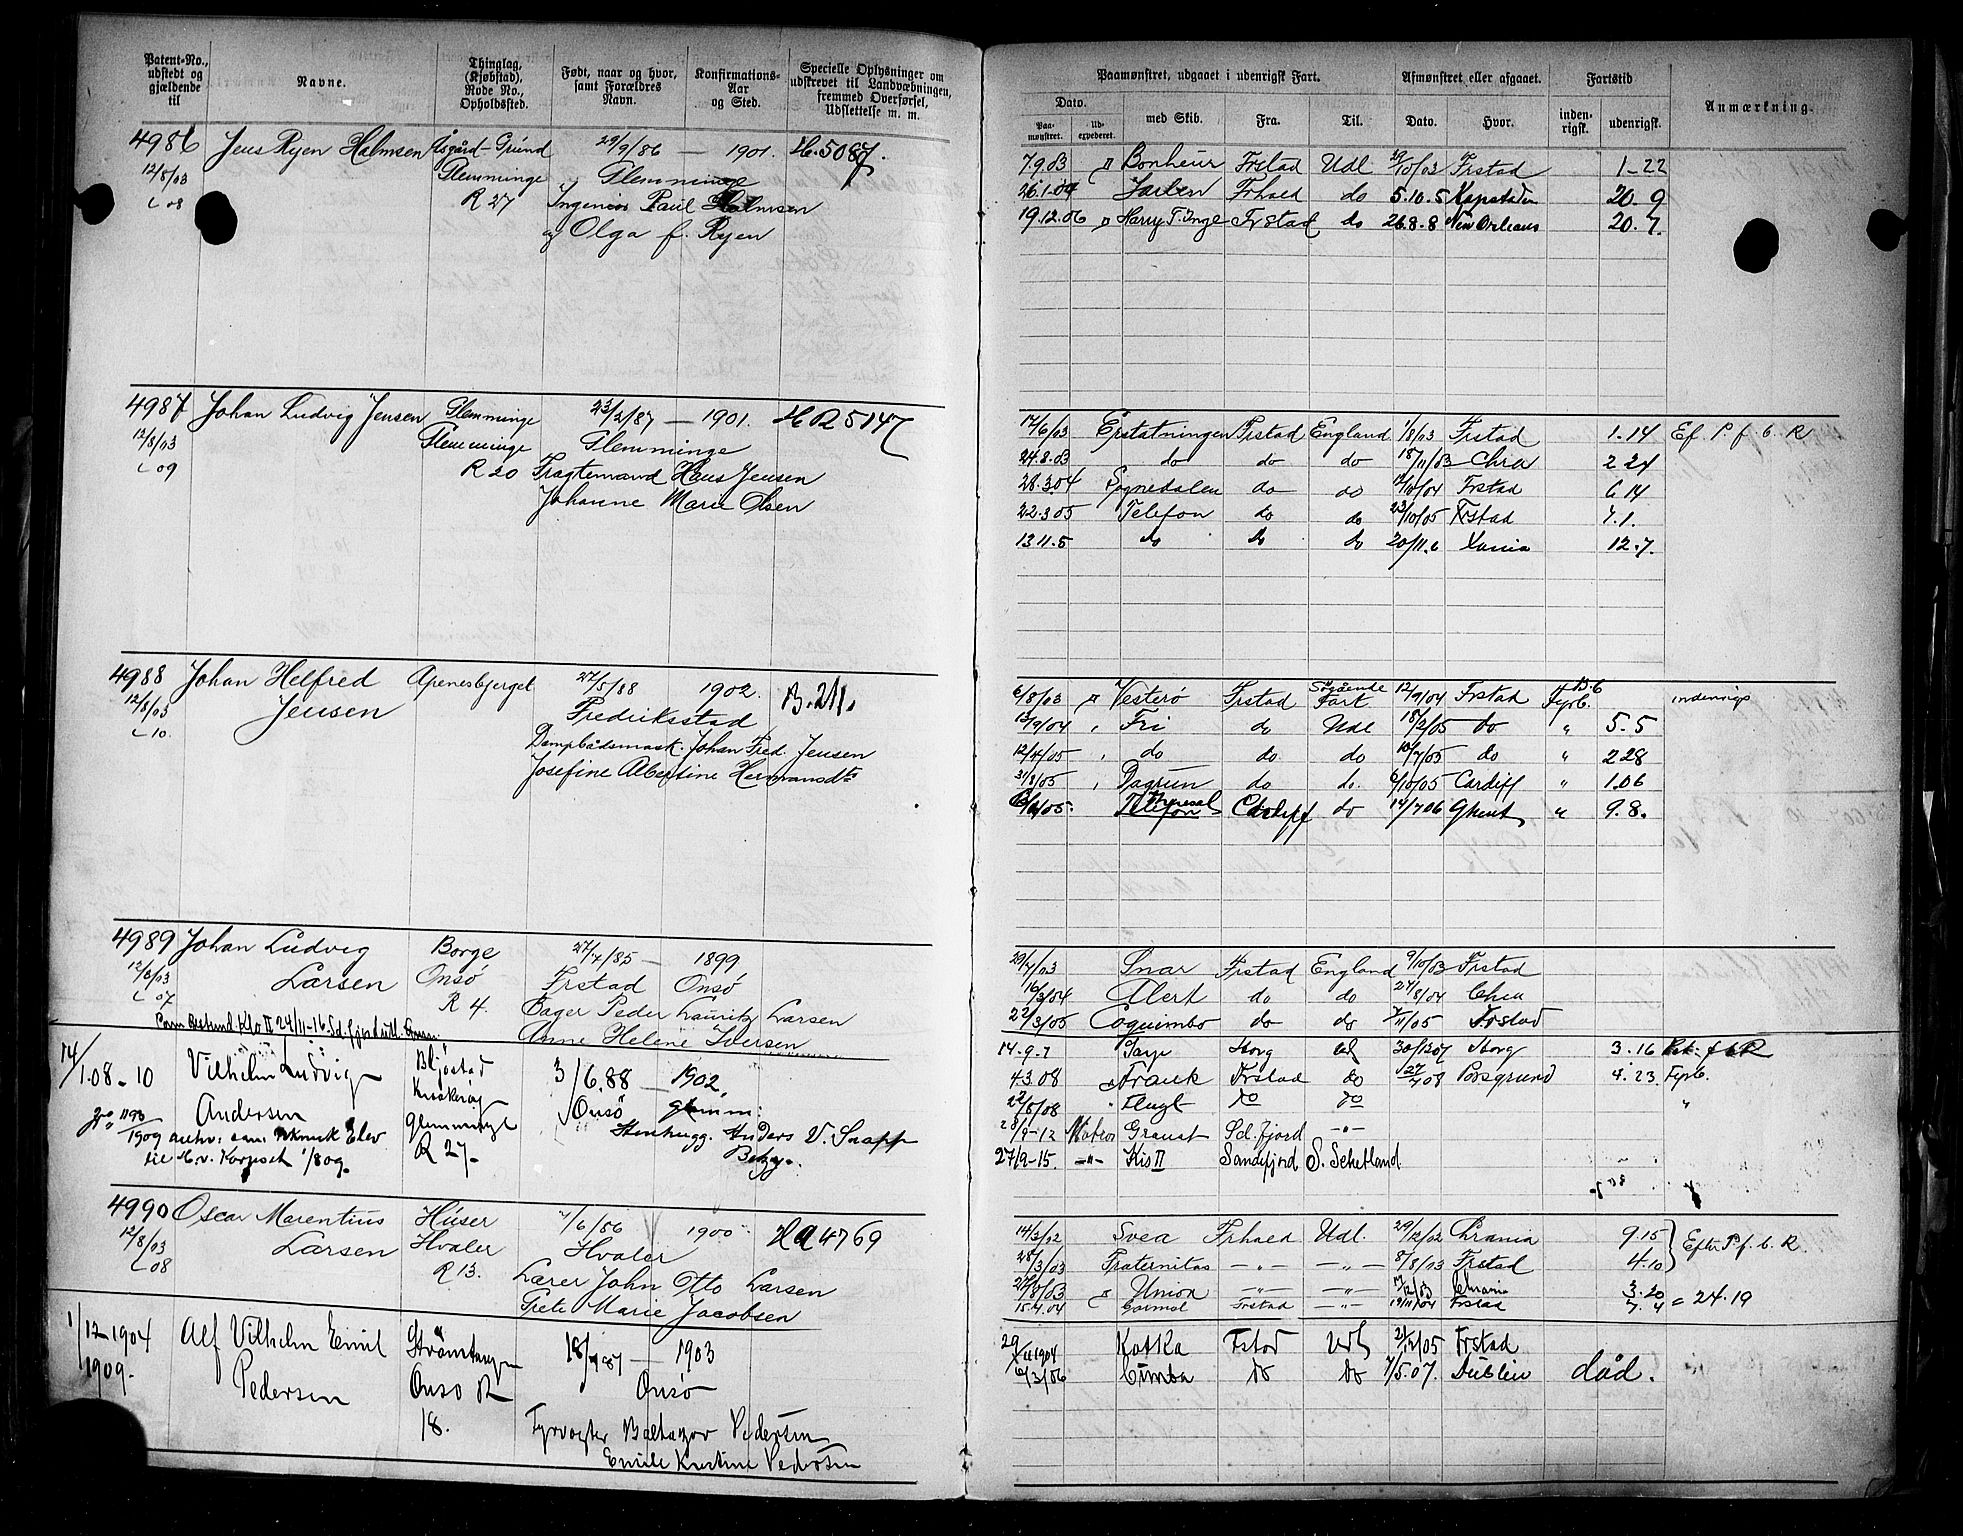 Patent-No., udstedt og gjældende til
Navne.
Thinglag, (Kjøbstad), Rode No., Opholdssted.
Født, naar og hvor, samt Forældres Navn.
Konfirmations-Aar og Sted.
Specielle Oplysninger om udskrevet til Landværnet, fremmed Overførsel, Udslettelse m. m.
4986 Jens Ryen Halmsen Åsgård-Grúnd 29/9/86 — 1901. H. 5087.
12/8/03 Glemminge Glemminge
L 08 R 27 Ingeniør Paul Halmsen
og Olga f. Ryen
4987 Johan Ludvig Jensen Glemminge 23/2/87 — 1901. H R 5147
12/8/03 Glemminge Glemminge
L 09 R 20 Fragtemand Hans Jensen
Johanne Marie Olsen
4988 Johan Helfred Apenesbjerget 27/5/88 1902. B. 211.
12/8/03 Jensen Fredriksstad
L 10. Dampbådsmask. Johan Fred. Jensen
Josefine Albertine Hermansdtr
4989 Johan Ludvig Borge 27/4/85 — 1899
12/8/03 Larsen Onsö Frstad Onsö
L 07 R 4. Bager Peder Lauritz Larsen
Anne Helene Iversen
14/1.08 - 10 Vilhelm Ludvig 3/6.88 — 1902
Andersen Glemminge Onsö glemm:
R 27. Stenhugg. Anders V. Snapp
til H.v. Korpset 1/8 09.
4990 Oscar Marentius Húser 7/6/86 1900 H a 4769
12/8/03 Larsen Hvaler Hvaler
L 08 R 13. Lærer John Otto Larsen
Grete Marie Jacobsen
1/12-1904 Alf Vilhelm Emil Strömtangen 18/9 87 — 1903
1909. Pedersen Onsø R Onsø
18. Fyrvogter Baltazar Pedersen
Emilie Kristine Pedersen
Paamønstret, udgaaet i udenrigsk Fart.
Afmønstret eller afgaaet.
Fartstid
Anmærkning.
Dato.
Paamønstret.
Udexpederet.
med Skib.
Fra.
Til.
Dato.
Hvor.
indenrigsk.
udenrigsk.
7.9.03 Bonheur Frstad Udl 29/10/03 Frstad 1-22
26.1.04 Jarlen Frhald do 5.10.5 Kapstaden 20.9
19.12.06 Harry T. Inge Frstad do 26.8.8 New Orleans 20.7.
17/6/03 Erstatningen Frstad England 1/8/03 Frstad 1.14 Ef. P. f. b. R
24.8.03 do do do 18/11/03 Chra 2 24
28.3.04 Sognedalen do do /10/04 Frstad 6 14
22.3 05 Telefon do do 23/10/05 Frstad 7.1.
13 11.5 do do do 20/11.6 Xania 12.7.
6/8/03 Vesterö Frstad Søgående Fart 12/9/04 Frstad Fyrb. indenrigs
13/9/04 Fri do Udl 18/2/05 do " 5.5
12/4/05 do do do 10/7/05 do " 2 28
31/8/05 Dagrun do do. 6/10/05 Cardiff " 1.06
Telefon Cardiff do 14/7 06 Ghent " 9.8.
29/7/03 Snar Frstad England 9/10/03 Frstad
16/3/04 Alert do do 27/8/04 Chra
22/3/05 Coquimbo do do /11/05 Frstad
14.9.7 Borg Udl 30/12 07 Borg 3.16
4 3.08 Frank Frstad do 27/7 08 Porsgrund 4.23 Fyrb.
22/8/08 Flugt do do "
28/9-12 Matros Granat Sd.fjord -"-
27/9-15. -"- Kis II Sandefjord S. Schetland
14/3/02 Svea Frhald Udl. 29/12/02 Chrania 9.15
28/3/03 Fraternitas -"- -"- 8/8/03 Frstad 4.10 Efter P. f. b. R.
27/8/03 Union -"- -"- Chrania 3.20
15.4.04 Gormol Frstad -"- 19/11/04 Frstad 7.4 = 24.19
29/11 1904 Kotka Fstad Udl 2/12/05 Frstad
6/3/06 Cimba do do 7/5.07. Dublin död.